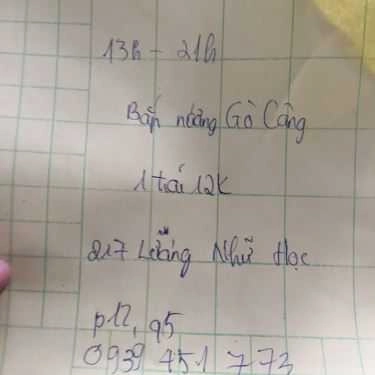 13h - 21h
Bắp nướng Gò Công
1 trái 12k
217 Lương Nhữ Học
p12, q5
0939 451 773